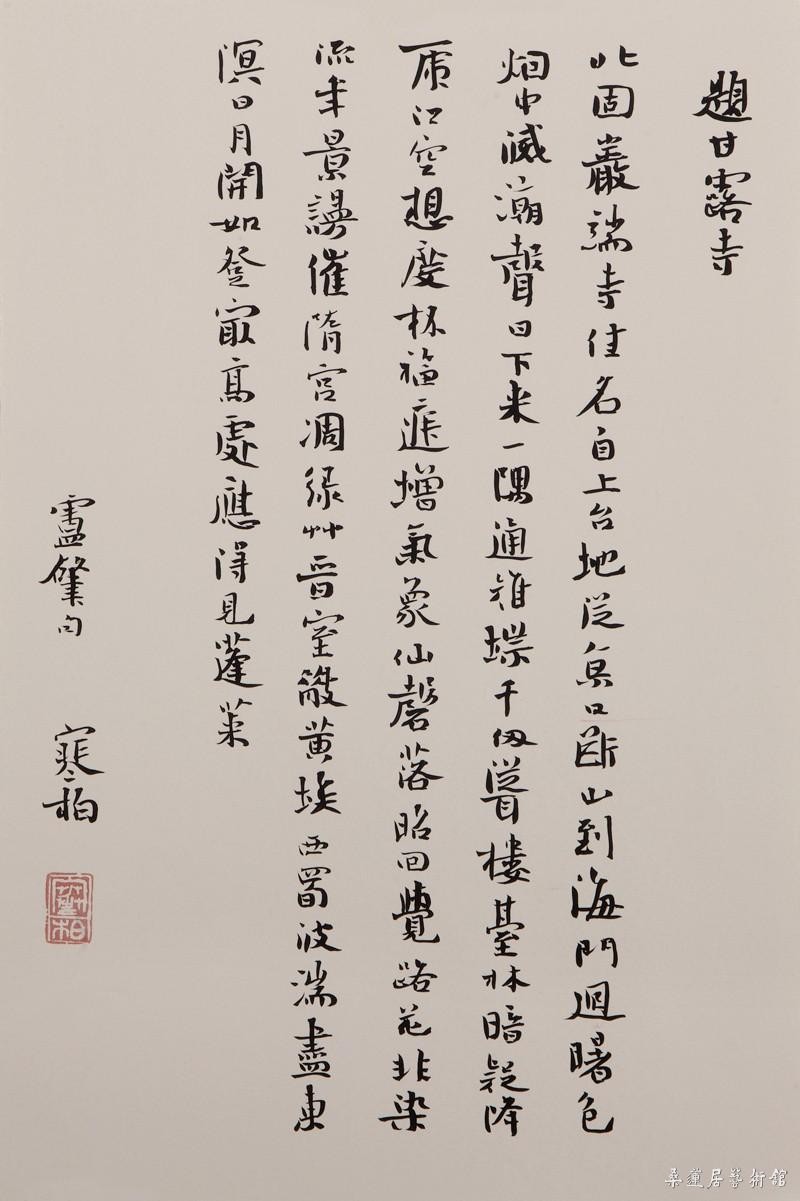 題甘露寺
北固巖端寺佳名自上台地從京口斷山到海門迴曙色
烟中滅潮聲日下來一隅通雉堞千仞聳樓臺林暗疑降
虎江空想度杯福庭增氣象仙磬落昭回覺路花非染
流年景謾催隋宮凋綠艸晉室散黃埃西蜀波湍盡東
溟日月開如登最高處應得見蓬萊
盧肇句 寒柏
寒柏
桑蓮居藝術館